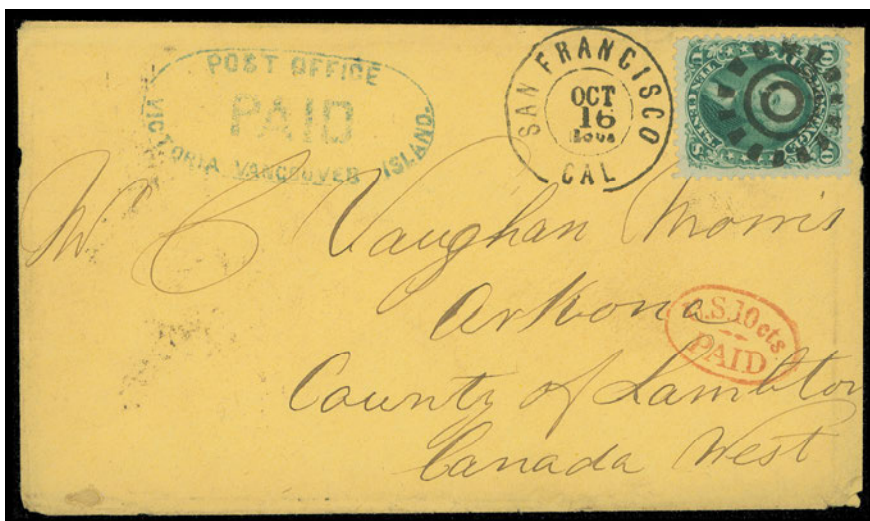 POST OFFICE
PAID
VICTORIA VANCOUVER ISLAND.
SAN FRANCISCO
OCT
16
CAL
Vaughan Morris
Arkona
County of Lambton
Canada West
U.S. 10 cts
PAID